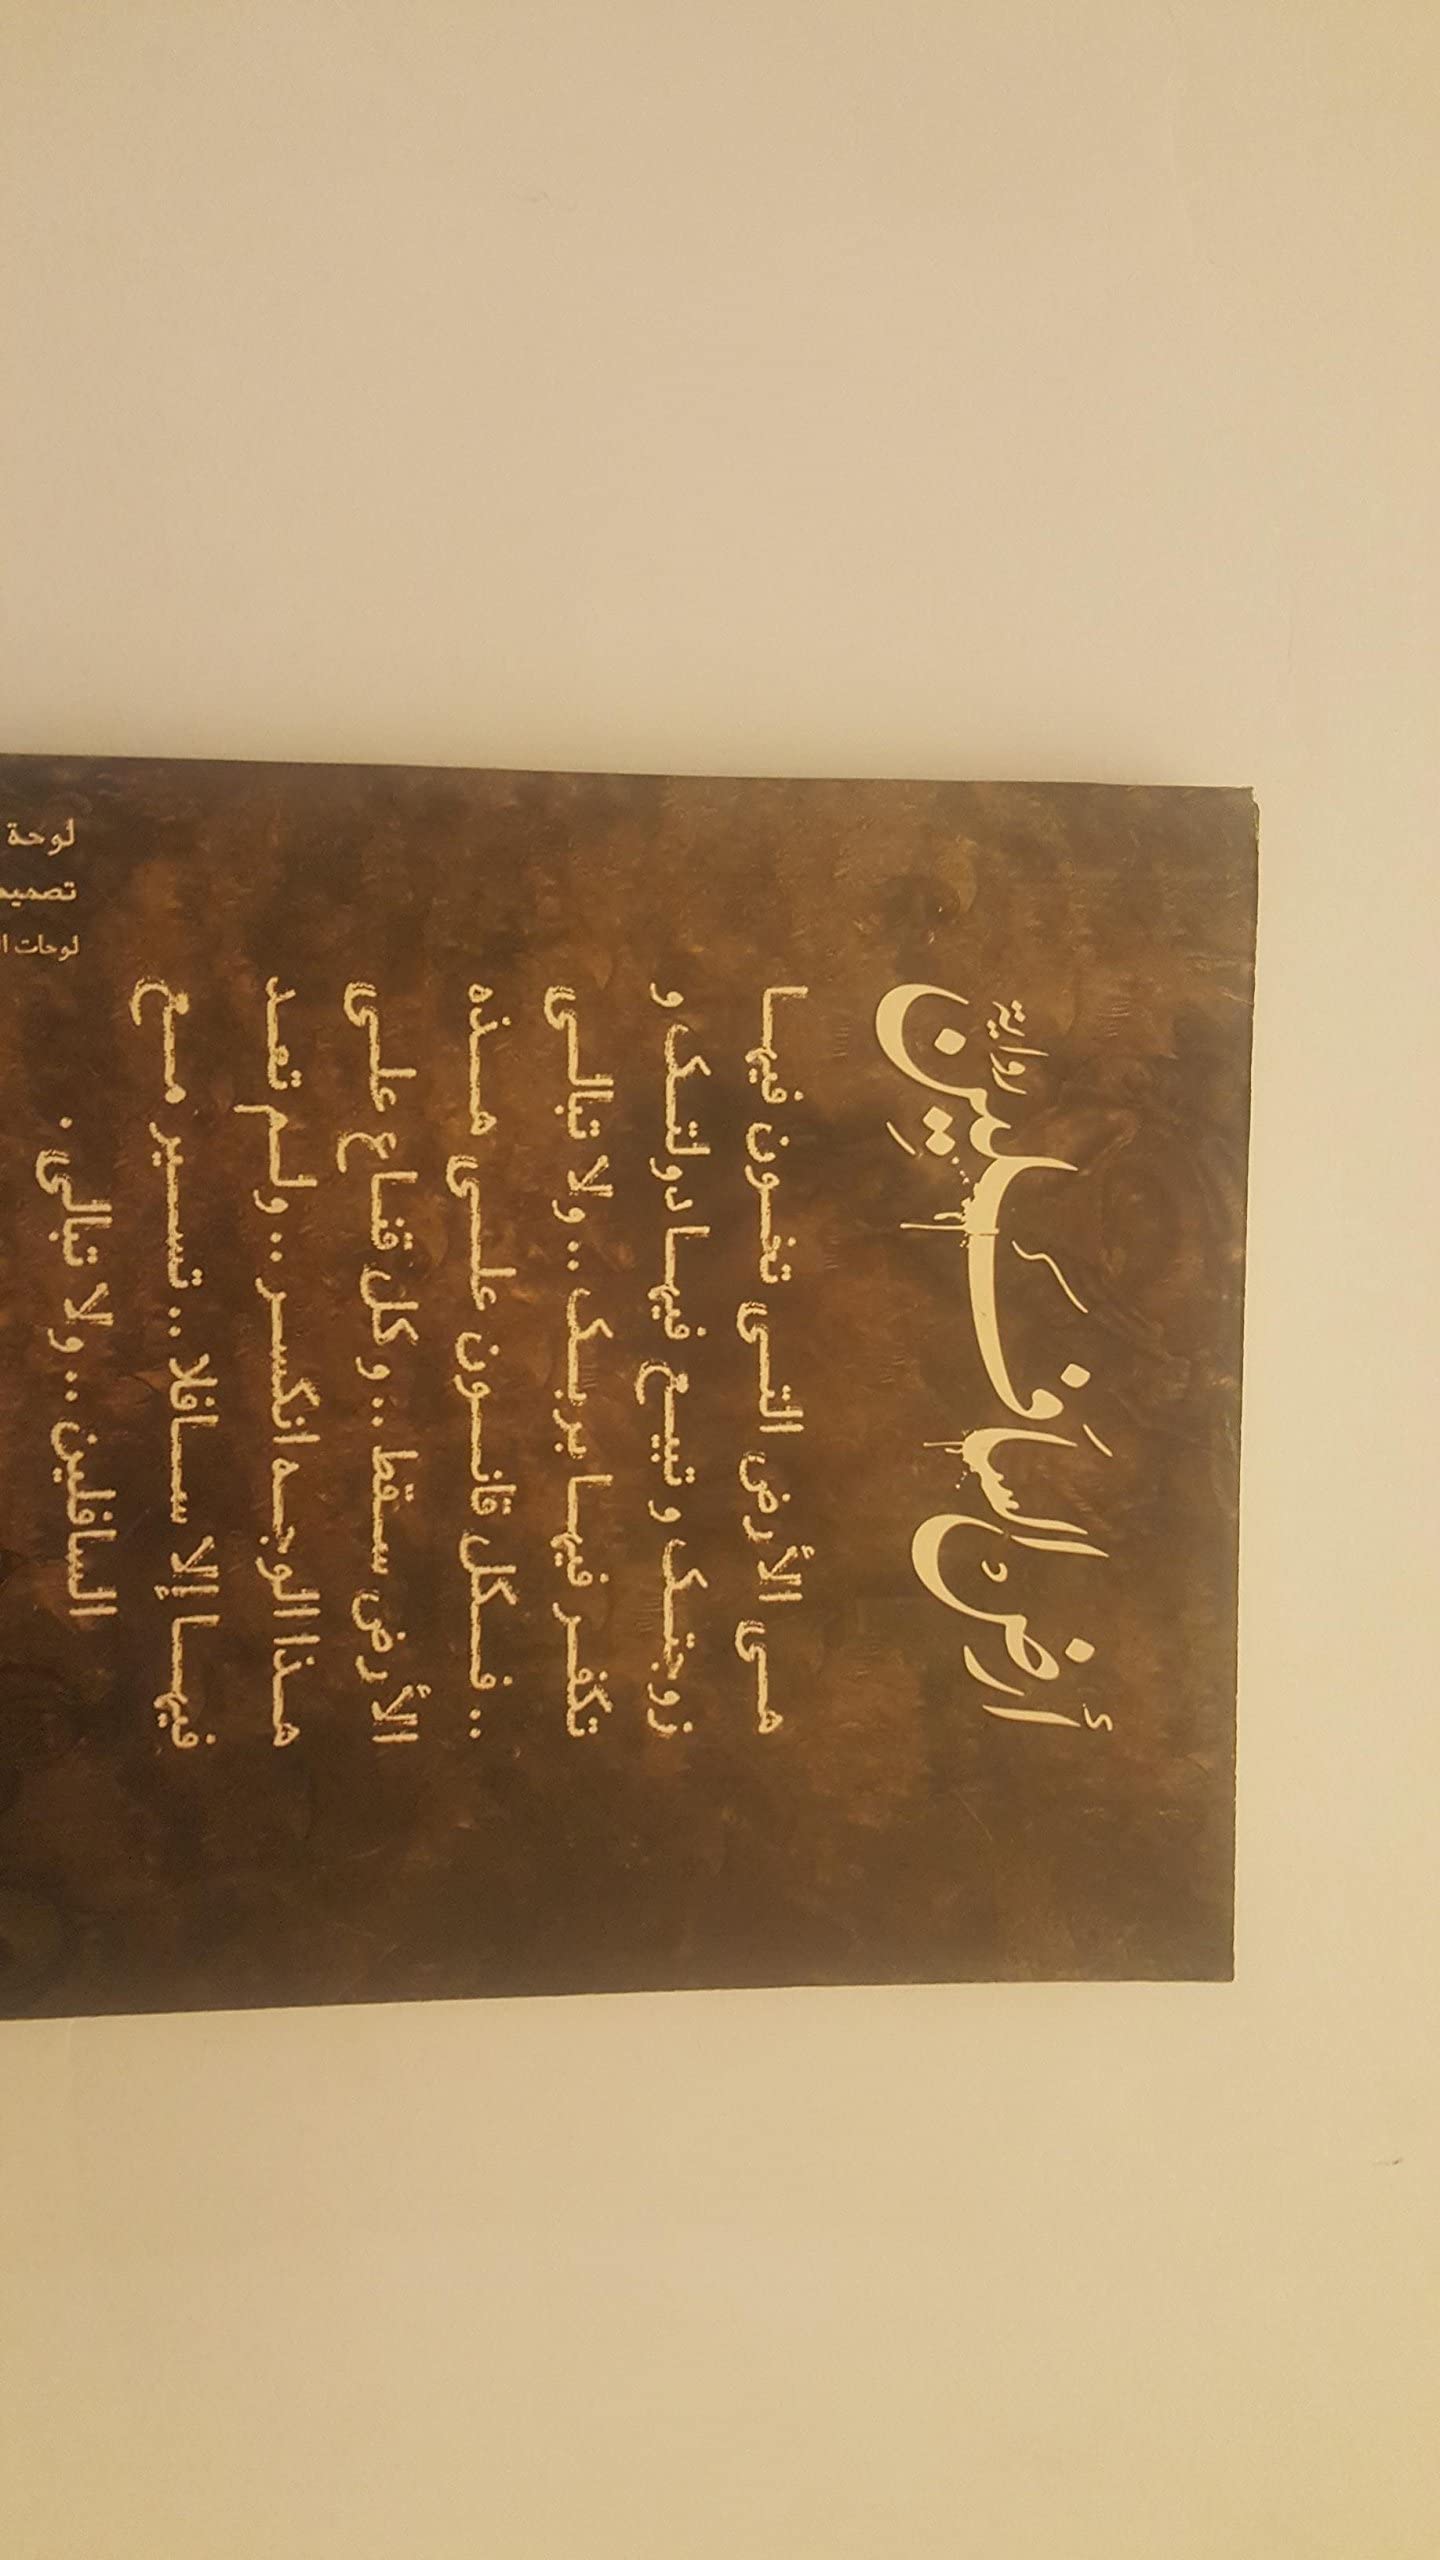 رواية
أرض السافلين
هى الأرض التى تخون فيها
زوجتك و تبيع فيها دولتك و
تكفر فيها بربك .. ولا تبالى
.. فكل قانون على هذه
الأرض سقط .. وكل قناع على
هذا الوجه انكسر .. ولم تعد
فيها إلا سافلا .. تسير مع
السافلين .. ولا تبالى .
لوحة
تصميم
لوحات ال